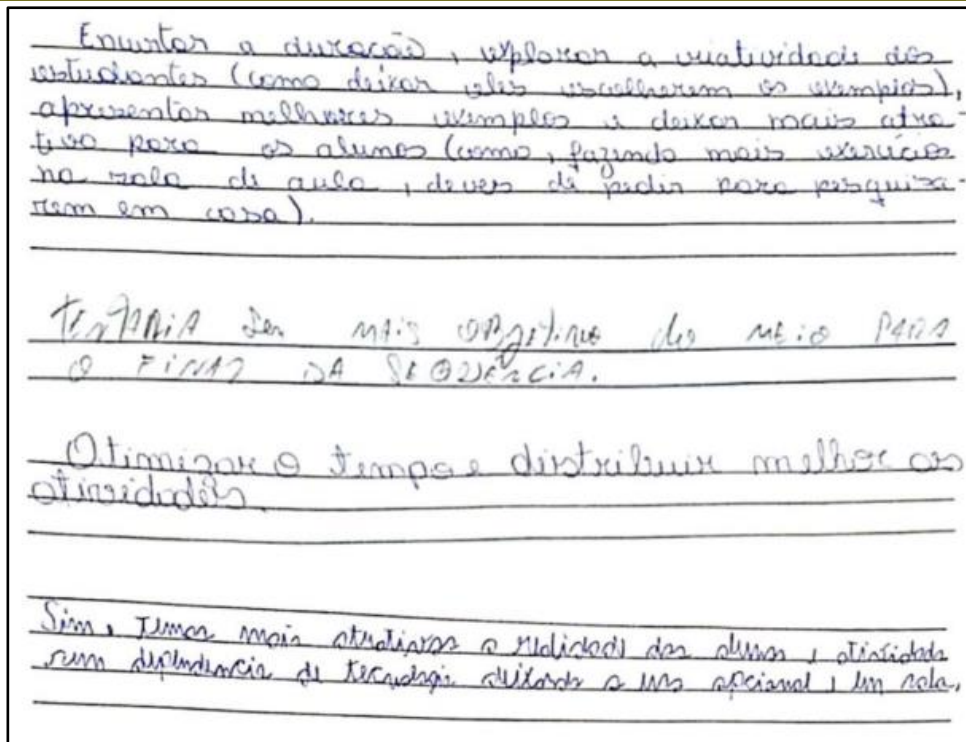 Encurtar a duração, explorar a criatividade dos
estudantes (como deixar eles escolherem os exemplos),
apresentar melhores exemplos e deixar mais atra-
tivo para os alunos (como, fazendo mais exercícios
na sala de aula, deves de pedir para pesquisa-
rem em casa).
TENTARIA Ser MAIS OBJETIVO do MEIO PARA
O FINAL DA SEQUÊNCIA.
Otimizar o tempo e distribuir melhor as
atividades.
Sim, temas mais atrativos a realidade dos alunos, atividade
sem dependencia de tecnologia deixando a uso opcional, em sala.